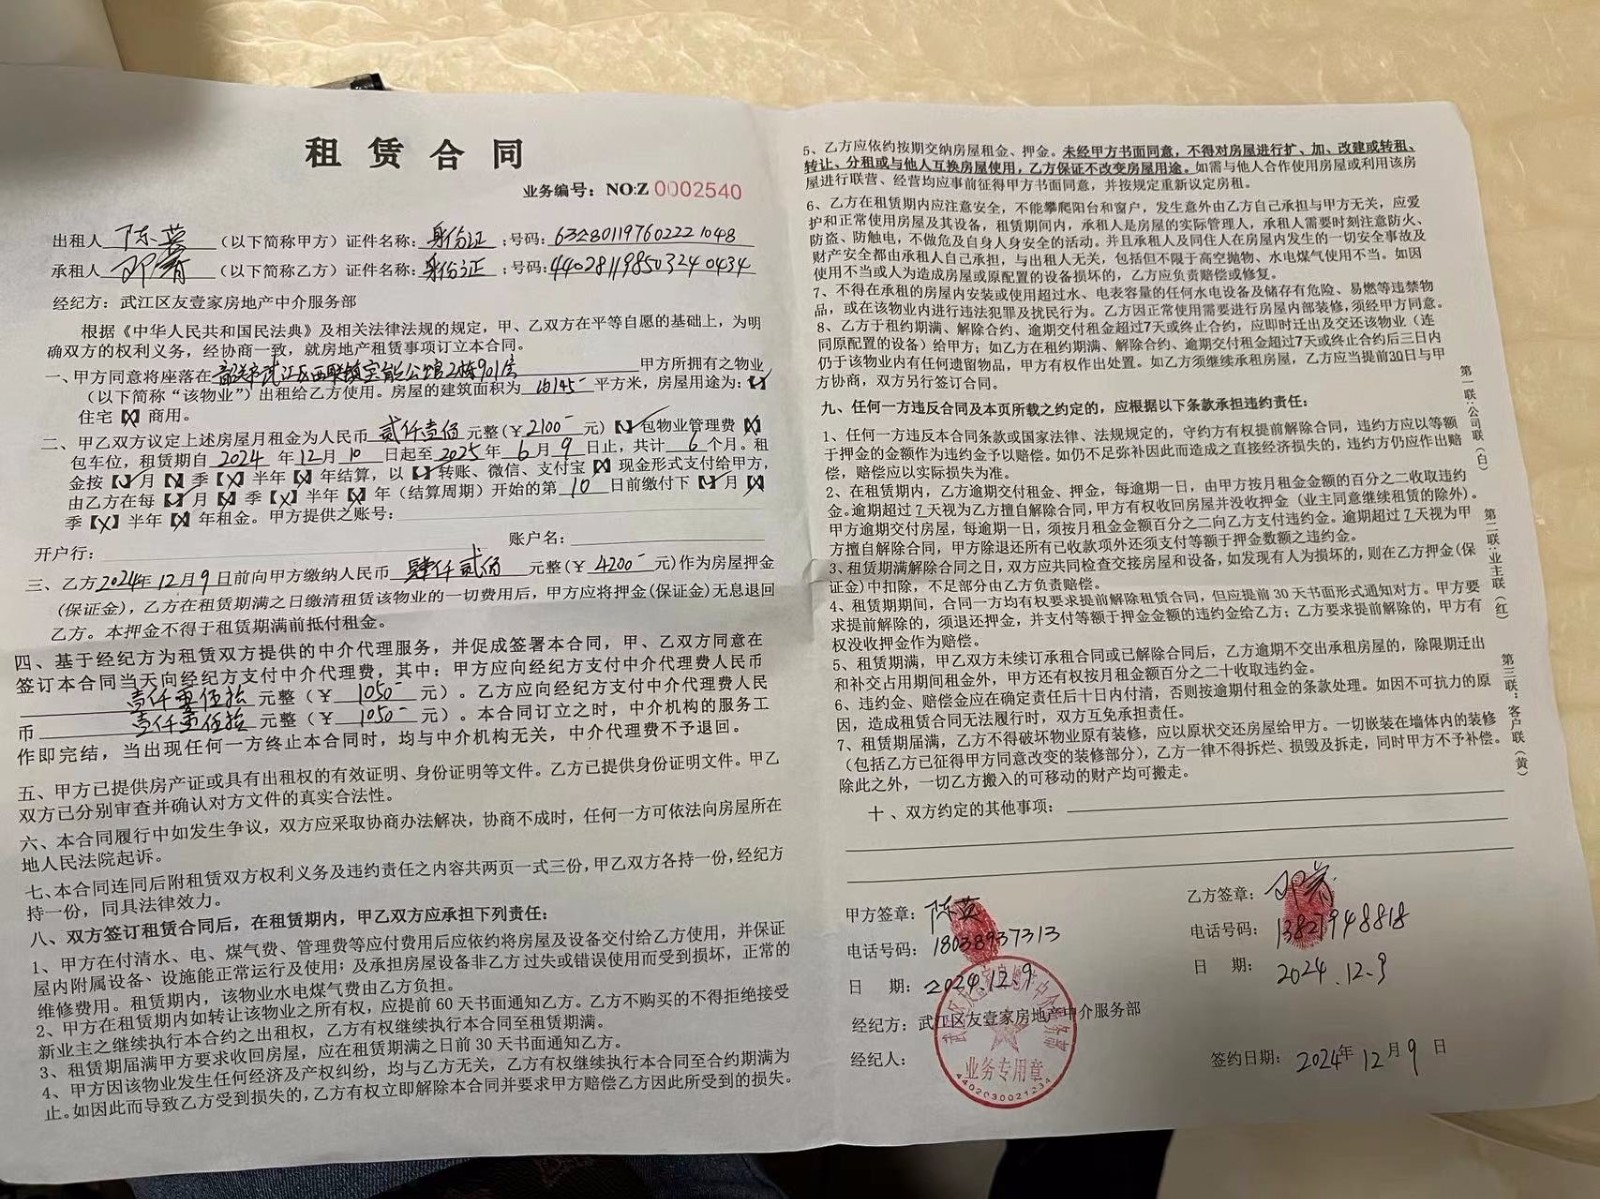 租 赁 合 同
业务编号：NO:Z 0002540
出租人 陈英 （以下简称甲方）证件名称：身份证；号码：632801197602221048
承租人 邓青 （以下简称乙方）证件名称：身份证；号码：440281198503240434
经纪方：武江区友壹家房地产中介服务部
根据《中华人民共和国民法典》及相关法律法规的规定，甲、乙双方在平等自愿的基础上，为明
确双方的权利义务，经协商一致，就房地产租赁事项订立本合同。
一、甲方同意将座落在 韶关市武江区西联镇宝能公馆2栋901房 甲方所拥有之物业
（以下简称“该物业”）出租给乙方使用。房屋的建筑面积为 平方米，房屋用途为：【✓】
住宅【X】商用。
二、甲乙双方议定上述房屋月租金为人民币 贰仟壹佰 元整（￥ 2100- 元）【✓】包物业管理费【X】
包车位，租赁期自 2024 年 12 月 10 日起至 2025 年 6 月 9 日止，共计 6 个月。租
金按【✓】月【X】季【X】半年【X】年结算，以【✓】转账、微信、支付宝【X】现金形式支付给甲方，
由乙方在每【✓】月【X】季【X】半年【X】年（结算周期）开始的第 10 日前缴付下【✓】月【X】
季【X】半年【X】年租金。甲方提供之账号：
开户行： 账户名：
三、乙方 2024年12月9日 前向甲方缴纳人民币 肆仟贰佰 元整（￥ 4200- 元）作为房屋押金
（保证金），乙方在租赁期满之日缴清租赁该物业的一切费用后，甲方应将押金（保证金）无息退回
乙方。本押金不得于租赁期满前抵付租金。
四、基于经纪方为租赁双方提供的中介代理服务，并促成签署本合同，甲、乙双方同意在
签订本合同当天向经纪方支付中介代理费，其中：甲方应向经纪方支付中介代理费人民币
壹仟零伍拾 元整（￥ 1050- 元）。乙方应向经纪方支付中介代理费人民
币 壹仟零伍拾 元整（￥ 1050- 元）。本合同订立之时，中介机构的服务工
作即完结，当出现任何一方终止本合同时，均与中介机构无关，中介代理费不予退回。
五、甲方已提供房产证或具有出租权的有效证明、身份证明等文件。乙方已提供身份证明文件。甲乙
双方已分别审查并确认对方文件的真实合法性。
六、本合同履行中如发生争议，双方应采取协商办法解决，协商不成时，任何一方可依法向房屋所在
地人民法院起诉。
七、本合同连同后附租赁双方权利义务及违约责任之内容共两页一式三份，甲乙双方各持一份，经纪方
持一份，同具法律效力。
八、双方签订租赁合同后，在租赁期内，甲乙双方应承担下列责任：
1、甲方在付清水、电、煤气费、管理费等应付费用后应依约将房屋及设备交付给乙方使用，并保证
屋内附属设备、设施能正常运行及使用；及承担房屋设备非乙方过失或错误使用而受到损坏，正常的
维修费用。租赁期内，该物业水电煤气费由乙方负担。
2、甲方在租赁期内如转让该物业之所有权，应提前60天书面通知乙方。乙方不购买的不得拒绝接受
新业主之继续执行本合约之出租权，乙方有权继续执行本合同至租赁期满。
3、租赁期届满甲方要求收回房屋，应在租赁期满之日前30天书面通知乙方。
4、甲方因该物业发生任何经济及产权纠纷，均与乙方无关，乙方有权继续执行本合同至合约期满为
止。如因此而导致乙方受到损失的，乙方有权立即解除本合同并要求甲方赔偿乙方因此所受到的损失。
5、乙方应依约按期交纳房屋租金、押金。未经甲方书面同意，不得对房屋进行扩、加、改建或转租、
转让、分租或与他人互换房屋使用，乙方保证不改变房屋用途。如需与他人合作使用房屋或利用该房
屋进行联营、经营均应事前征得甲方书面同意，并按规定重新议定房租。
6、乙方在租赁期内应注意安全，不能攀爬阳台和窗户，发生意外由乙方自己承担与甲方无关，应爱
护和正常使用房屋及其设备，租赁期间内，承租人是房屋的实际管理人，承租人需要时刻注意防火、
防盗、防触电，不做危及自身人身安全的活动。并且承租人及同住人在房屋内发生的一切安全事故及
财产安全都由承租人自己承担，与出租人无关，包括但不限于高空抛物、水电煤气使用不当。如因
使用不当或人为造成房屋或原配置的设备损坏的，乙方应负责赔偿或修复。
7、不得在承租的房屋内安装或使用超过水、电表容量的任何水电设备及储存有危险、易燃等违禁物
品，或在该物业内进行违法犯罪及扰民行为。乙方因正常使用需要进行房屋内部装修，须经甲方同意。
8、乙方于租约期满、解除合约、逾期交付租金超过7天或终止合约，应即时迁出及交还该物业（连
同原配置的设备）给甲方；如乙方在租约期满、解除合约、逾期交付租金超过7天或终止合约后三日内
仍于该物业内有任何遗留物品，甲方有权作出处置。如乙方须继续承租房屋，乙方应当提前30日与甲
方协商，双方另行签订合同。
九、任何一方违反合同及本页所载之约定的，应根据以下条款承担违约责任：
1、任何一方违反本合同条款或国家法律、法规规定的，守约方有权提前解除合同，违约方应以等额
于押金的金额作为违约金予以赔偿。如仍不足弥补因此而造成之直接经济损失的，违约方仍应作出赔
偿，赔偿应以实际损失为准。
2、在租赁期内，乙方逾期交付租金、押金，每逾期一日，由甲方按月租金金额的百分之二收取违约
金。逾期超过7天视为乙方擅自解除合同，甲方有权收回房屋并没收押金（业主同意继续租赁的除外）。
甲方逾期交付房屋，每逾期一日，须按月租金金额百分之二向乙方支付违约金。逾期超过7天视为甲
方擅自解除合同，甲方除退还所有已收款项外还须支付等额于押金数额之违约金。
3、租赁期满解除合同之日，双方应共同检查交接房屋和设备，如发现有人为损坏的，则在乙方押金（保
证金）中扣除，不足部分由乙方负责赔偿。
4、租赁期期间，合同一方均有权要求提前解除租赁合同，但应提前30天书面形式通知对方。甲方要
求提前解除的，须退还押金，并支付等额于押金金额的违约金给乙方；乙方要求提前解除的，甲方有
权没收押金作为赔偿。
5、租赁期满，甲乙双方未续订承租合同或已解除合同后，乙方逾期不交出承租房屋的，除限期迁出
和补交占用期间租金外，甲方还有权按月租金额百分之二十收取违约金。
6、违约金、赔偿金应在确定责任后十日内付清，否则按逾期付租金的条款处理。如因不可抗力的原
因，造成租赁合同无法履行时，双方互免承担责任。
7、租赁期届满，乙方不得破坏物业原有装修，应以原状交还房屋给甲方。一切嵌装在墙体内的装修
（包括乙方已征得甲方同意改变的装修部分），乙方一律不得拆烂、损毁及拆走，同时甲方不予补偿。
除此之外，一切乙方搬入的可移动的财产均可搬走。
十、双方约定的其他事项：
甲方签章：陈英 乙方签章：邓青
电话号码：18038937313 电话号码：13827948818
日 期：2024.12.9 日 期：2024.12.9
经纪方：武江区友壹家房地产中介服务部
经纪人： 签约日期：2024年12月9日
业务专用章
4402030021234
第一联：公司联（白）
第二联：业主联（红）
第三联：客户联（黄）